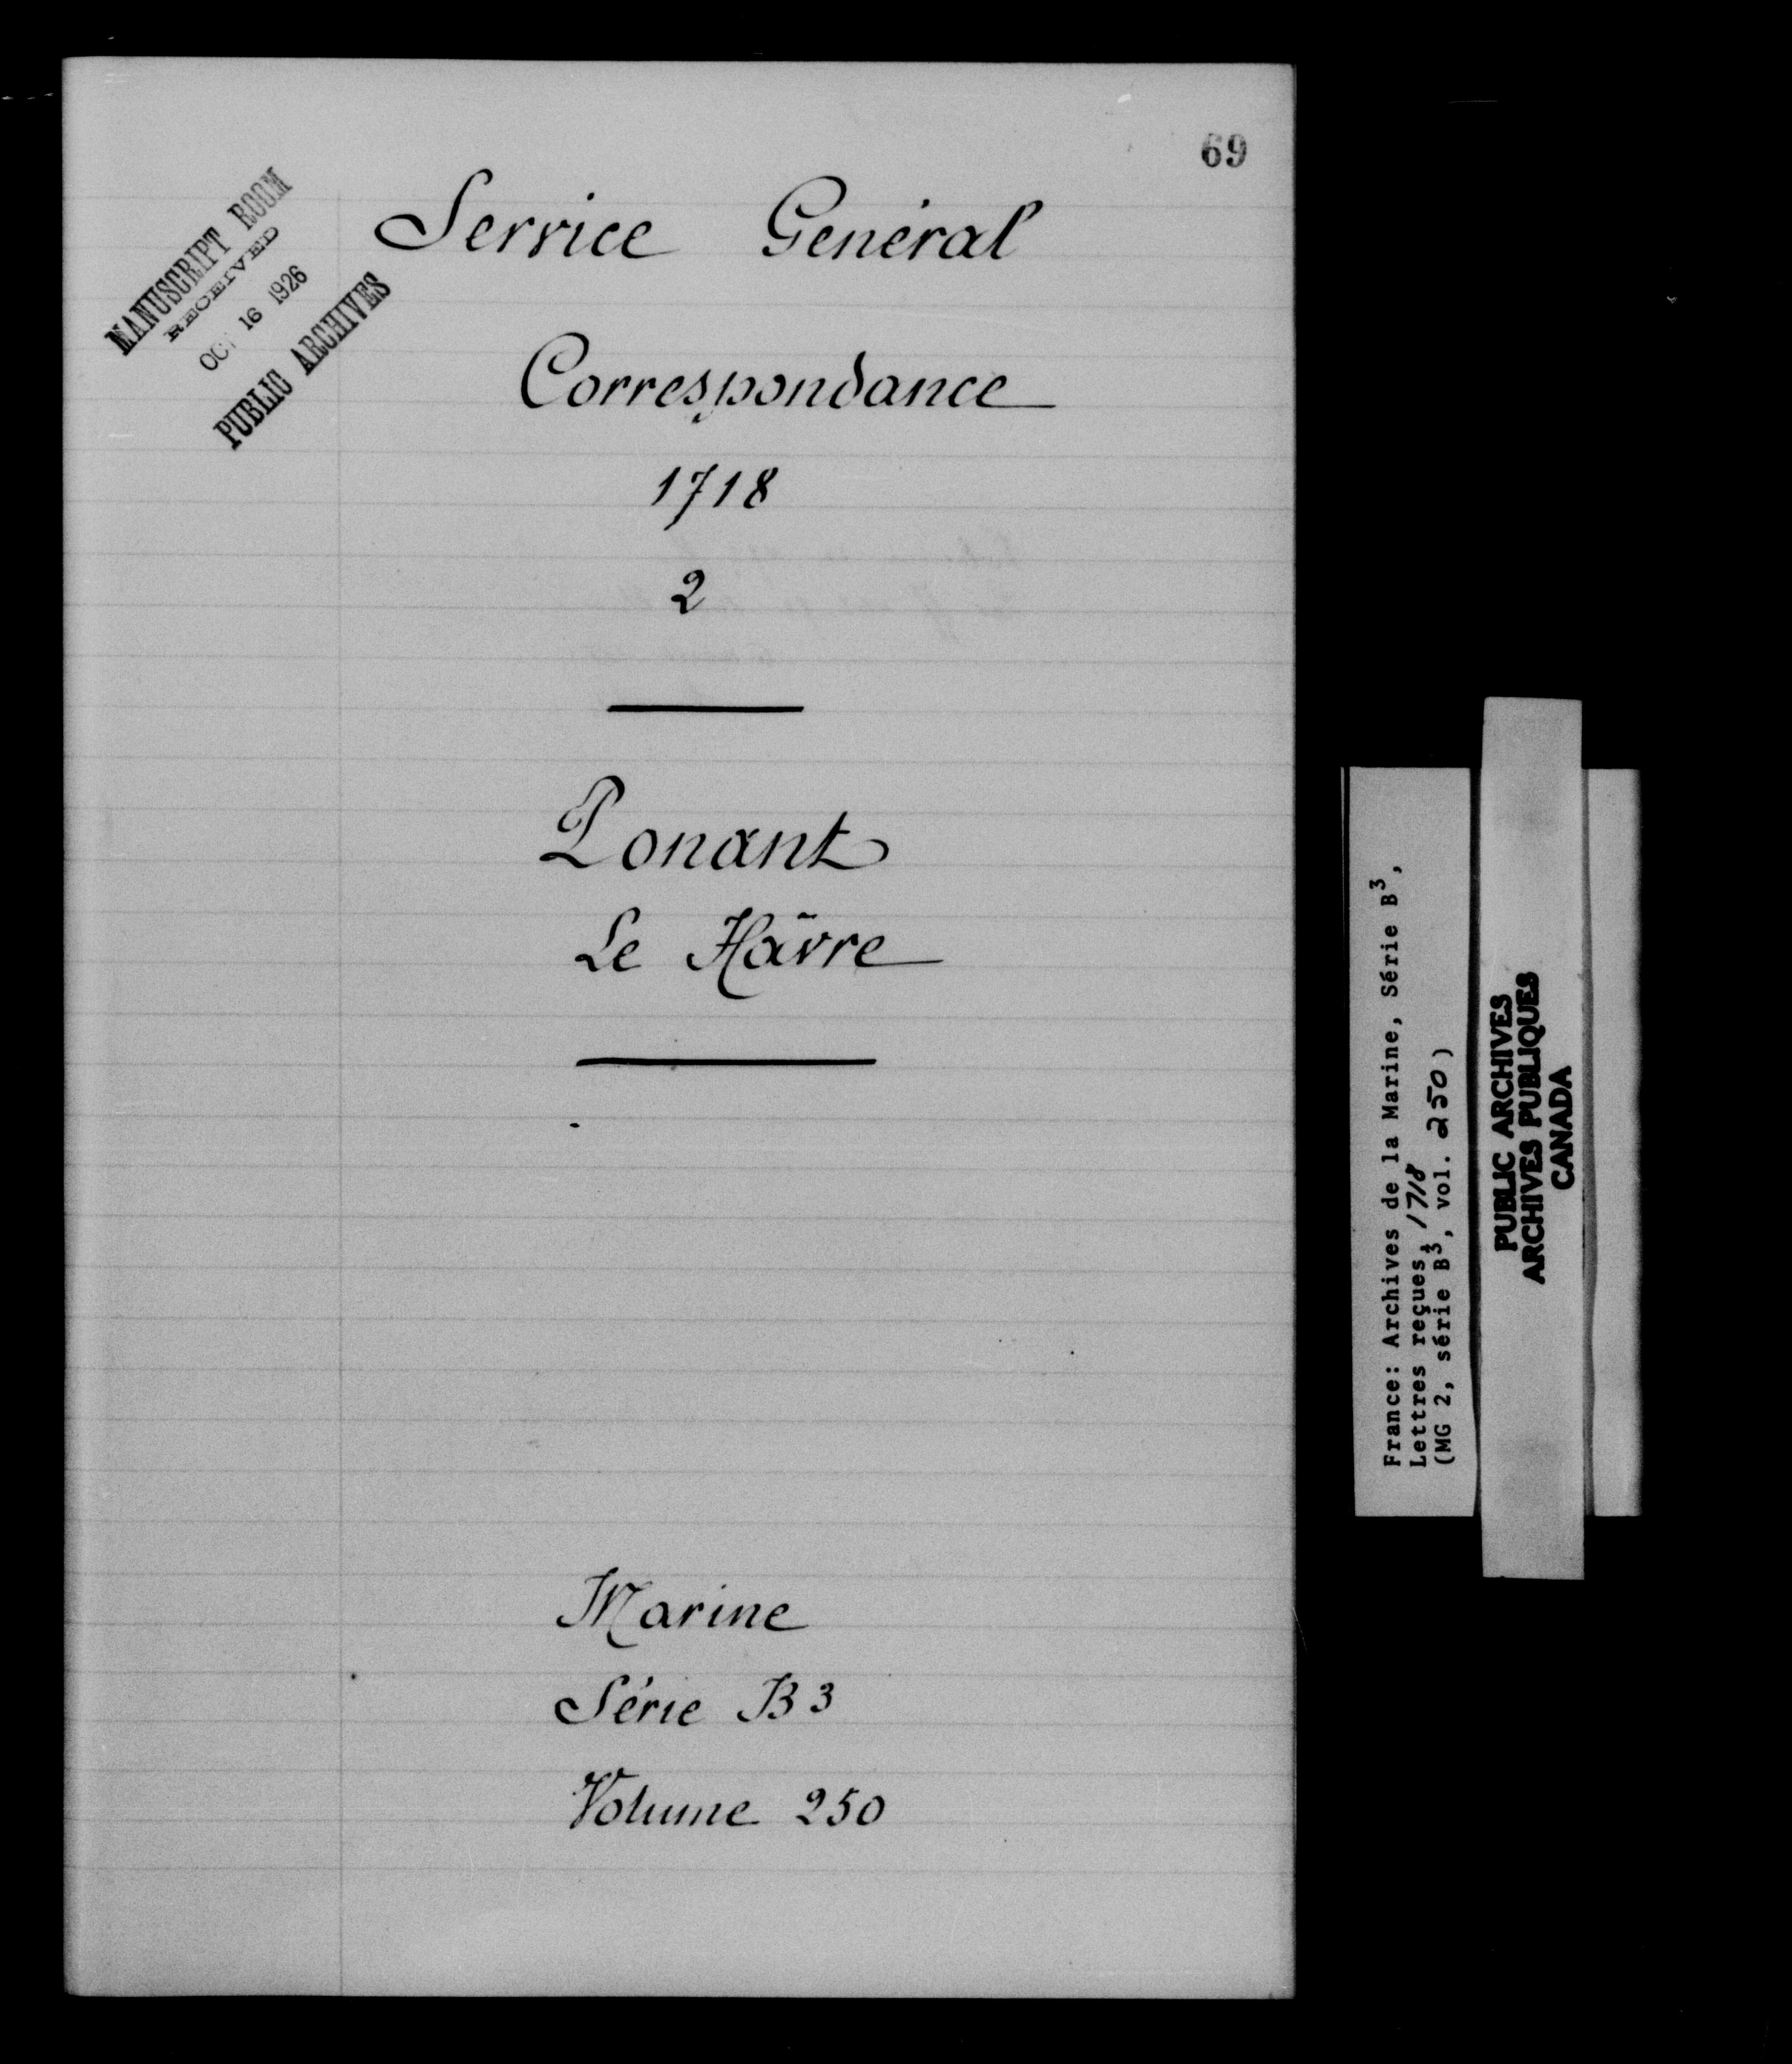 69
MANUSCRIPT ROOM
RECEIVED
OCT 16 1926
PUBLIC ARCHIVES
Service Général
Correspondance
1718
2
Ponant
Le Hâvre
Marine
Série B3
Volume 250
France: Archives de la Marine, Série B³,
Lettres reçues, 1718
(MG 2, série B³, vol. 250)
PUBLIC ARCHIVES
ARCHIVES PUBLIQUES
CANADA